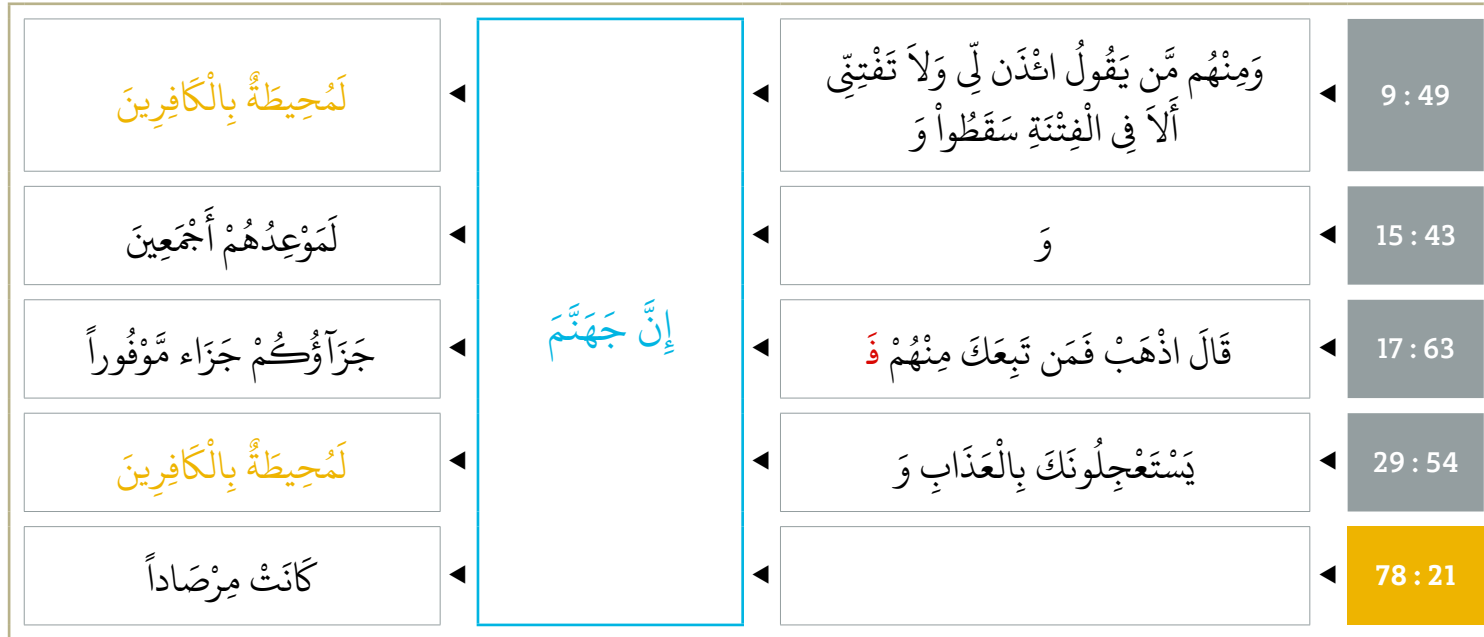 9 : 49
وَمِنْهُم مَّن يَقُولُ ائْذَن لِّى وَلاَ تَفْتِنِّى
أَلاَ فِى الْفِتْنَةِ سَقَطُواْ وَ
لَمُحِيطَةٌ بِالْكَافِرِينَ
15 : 43
وَ
لَمَوْعِدُهُمْ أَجْمَعِينَ
إِنَّ جَهَنَّمَ
17 : 63
قَالَ اذْهَبْ فَمَن تَبِعَكَ مِنْهُمْ فَ
جَزَآؤُكُمْ جَزَاء مَّوْفُوراً
29 : 54
يَسْتَعْجِلُونَكَ بِالْعَذَابِ وَ
لَمُحِيطَةٌ بِالْكَافِرِينَ
78 : 21
كَانَتْ مِرْصَاداً